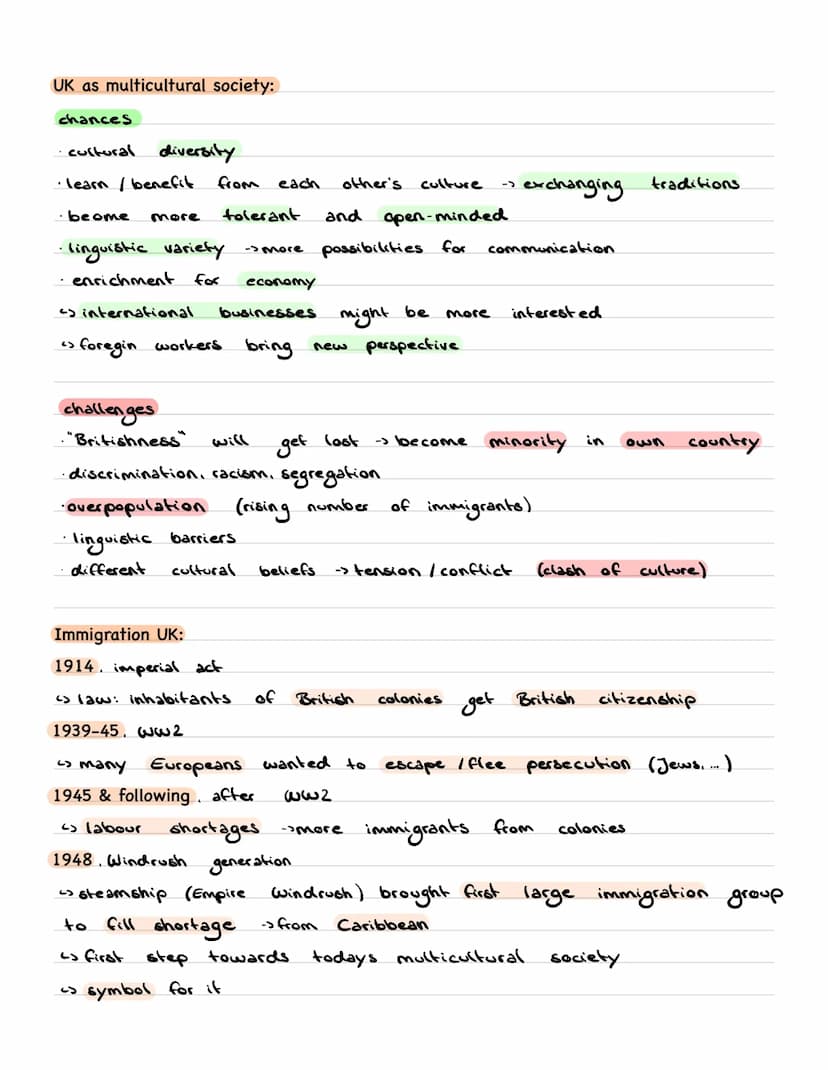 UK as multicultural society:
chances
· cultural diversity
· learn / benefit from each other's culture -> exchanging traditions
· beome more tolerant and open-minded
· linguistic variety -> more possibilities for communication
· enrichment for economy
↳ international businesses might be more interested
↳ foregin workers bring new perspective
challenges
· "Britishness" will get lost -> become minority in own country
· discrimination, racism, segregation
· overpopulation (rising number of immigrants)
· linguistic barriers
· different cultural beliefs -> tension / conflict (clash of culture)
Immigration UK:
1914, imperial act
↳ law: inhabitants of British colonies get British citizenship
1939-45, WW2
↳ many Europeans wanted to escape / flee persecution (Jews, ...)
1945 & following, after WW2
↳ labour shortages -> more immigrants from colonies
1948, Windrush generation
↳ steamship (Empire Windrush) brought first large immigration group
to fill shortage -> from Caribbean
↳ first step towards todays multicultural society
↳ symbol for it